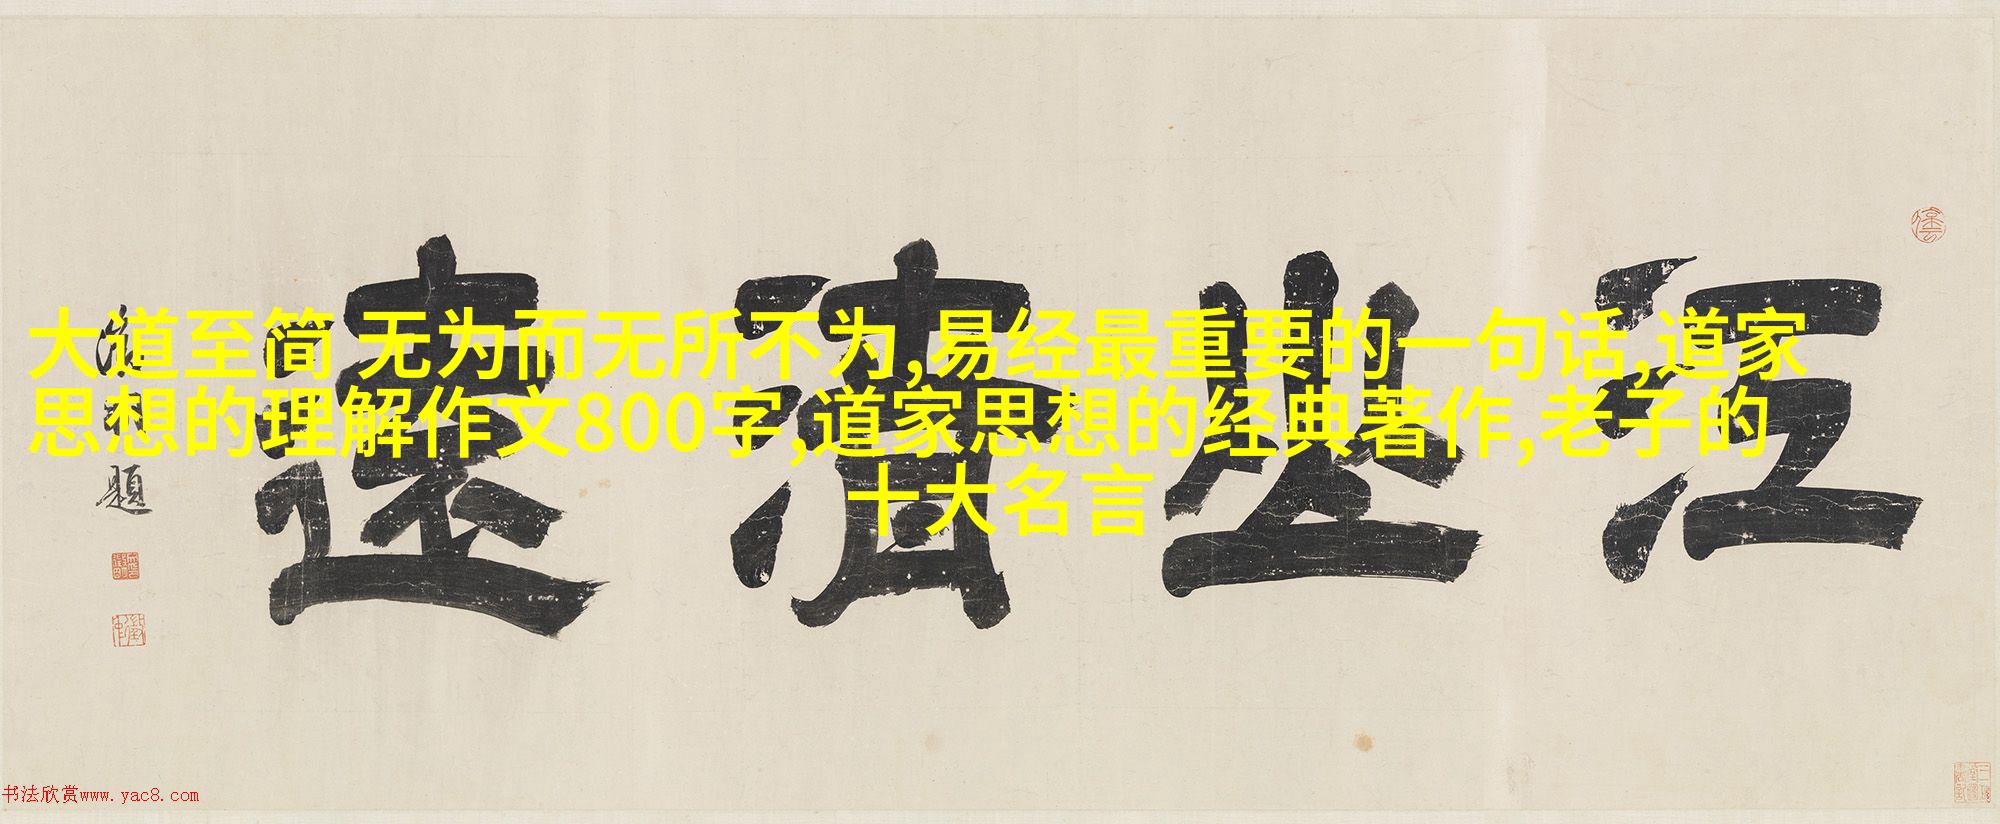 大道至简 无为而无所不为,易经最重要的一句话,道家
思想的理解作文800字,道家思想的经典著作,老子的
十大名言
江山清遠
題
书法欣赏www.yac8.com